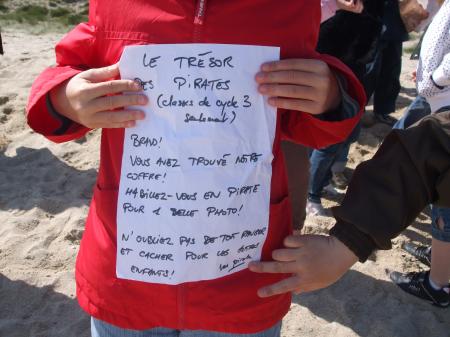 LE TRÉSOR
DES PIRATES
(classes de cycle 3
seulement)
BRAVO!
VOUS AVEZ TROUVÉ NOTRE
COFFRE!
HABILLEZ-VOUS EN PIRATE
POUR 1 BELLE PHOTO!
N'OUBLIEZ PAS DE TOUT RANGER
ET CACHER POUR LES AUTRES
ENFANTS! Les pirates